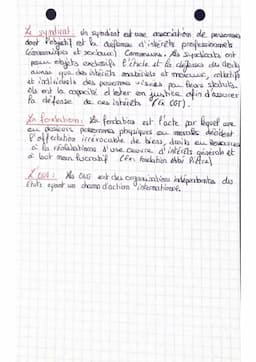 Le syndicat : un syndicat est une association de personnes
dont l'objectif est la défense d'intérêts professionnels
(économiques et sociaux) communs. Les syndicats ont
pour objets exclusifs l'étude et la défense des droits
ainsi que des intérêts matériels et moraux, collectifs
et individuels des personnes visées par leurs statuts.
Ils ont la capacité d'ester en justice afin d'assurer
la défense de ces intérêts (Ex CGT).
La fondation : La fondation est l'acte par lequel une
ou plusieurs personnes physiques ou morales décident
l'affectation irrévocable de biens, droits ou ressources
à la réalisation d'une oeuvre d'intérêt générale et
à but non lucratif (Ex: fondation Abbé Pierre).
L'ONG : Les ONG sont des organisations indépendantes des
Etats ayant un champ d'action international.